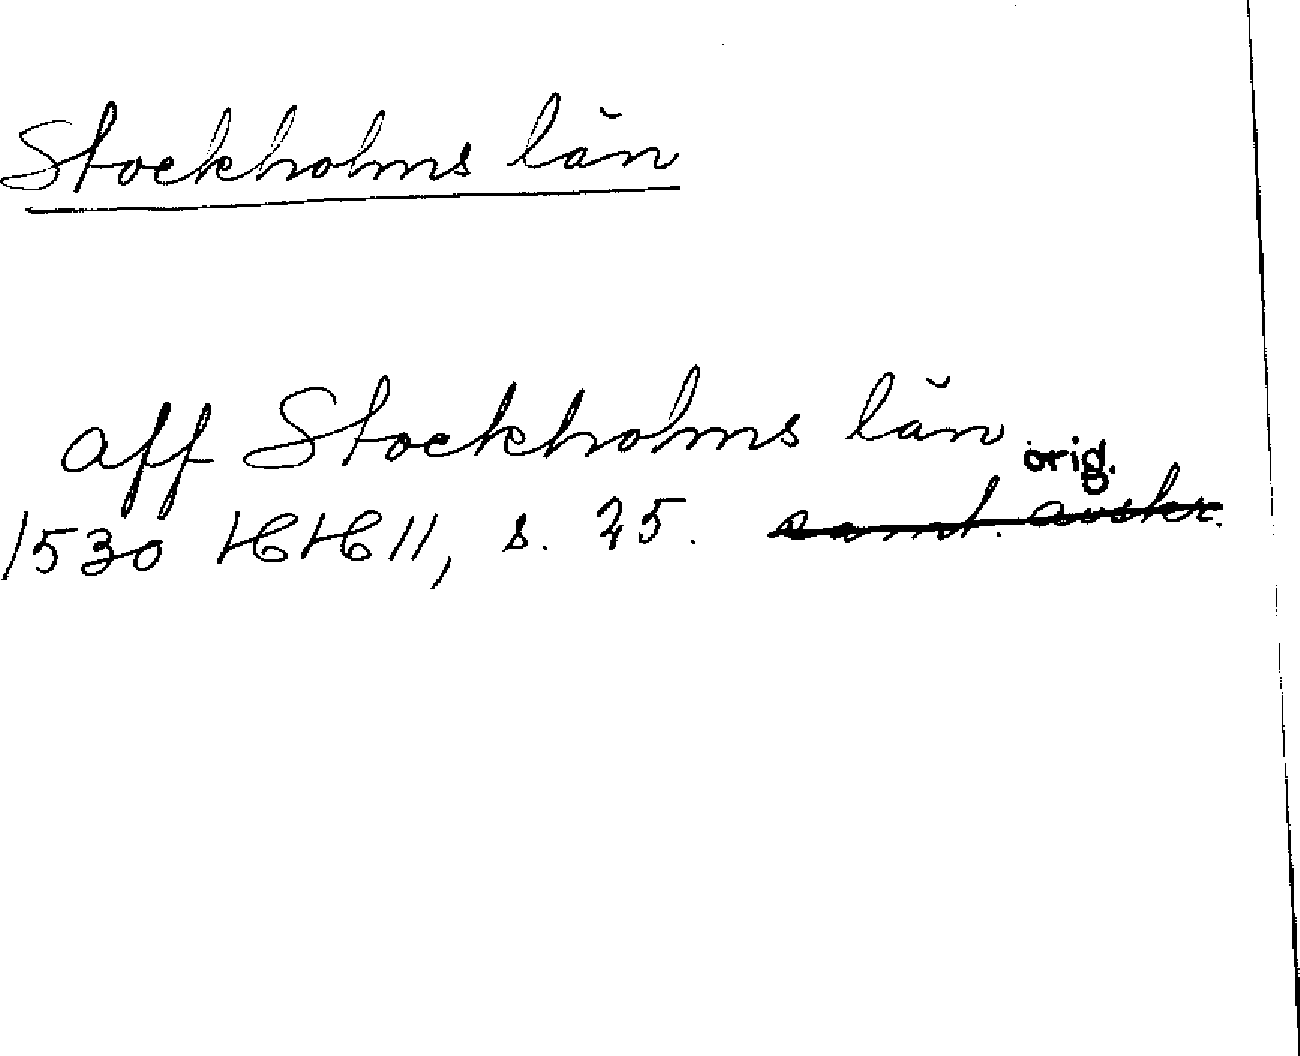 Stockholms län
aff Stockholms län
orig.
1530 HH 11, s. 25. samt. avskr.